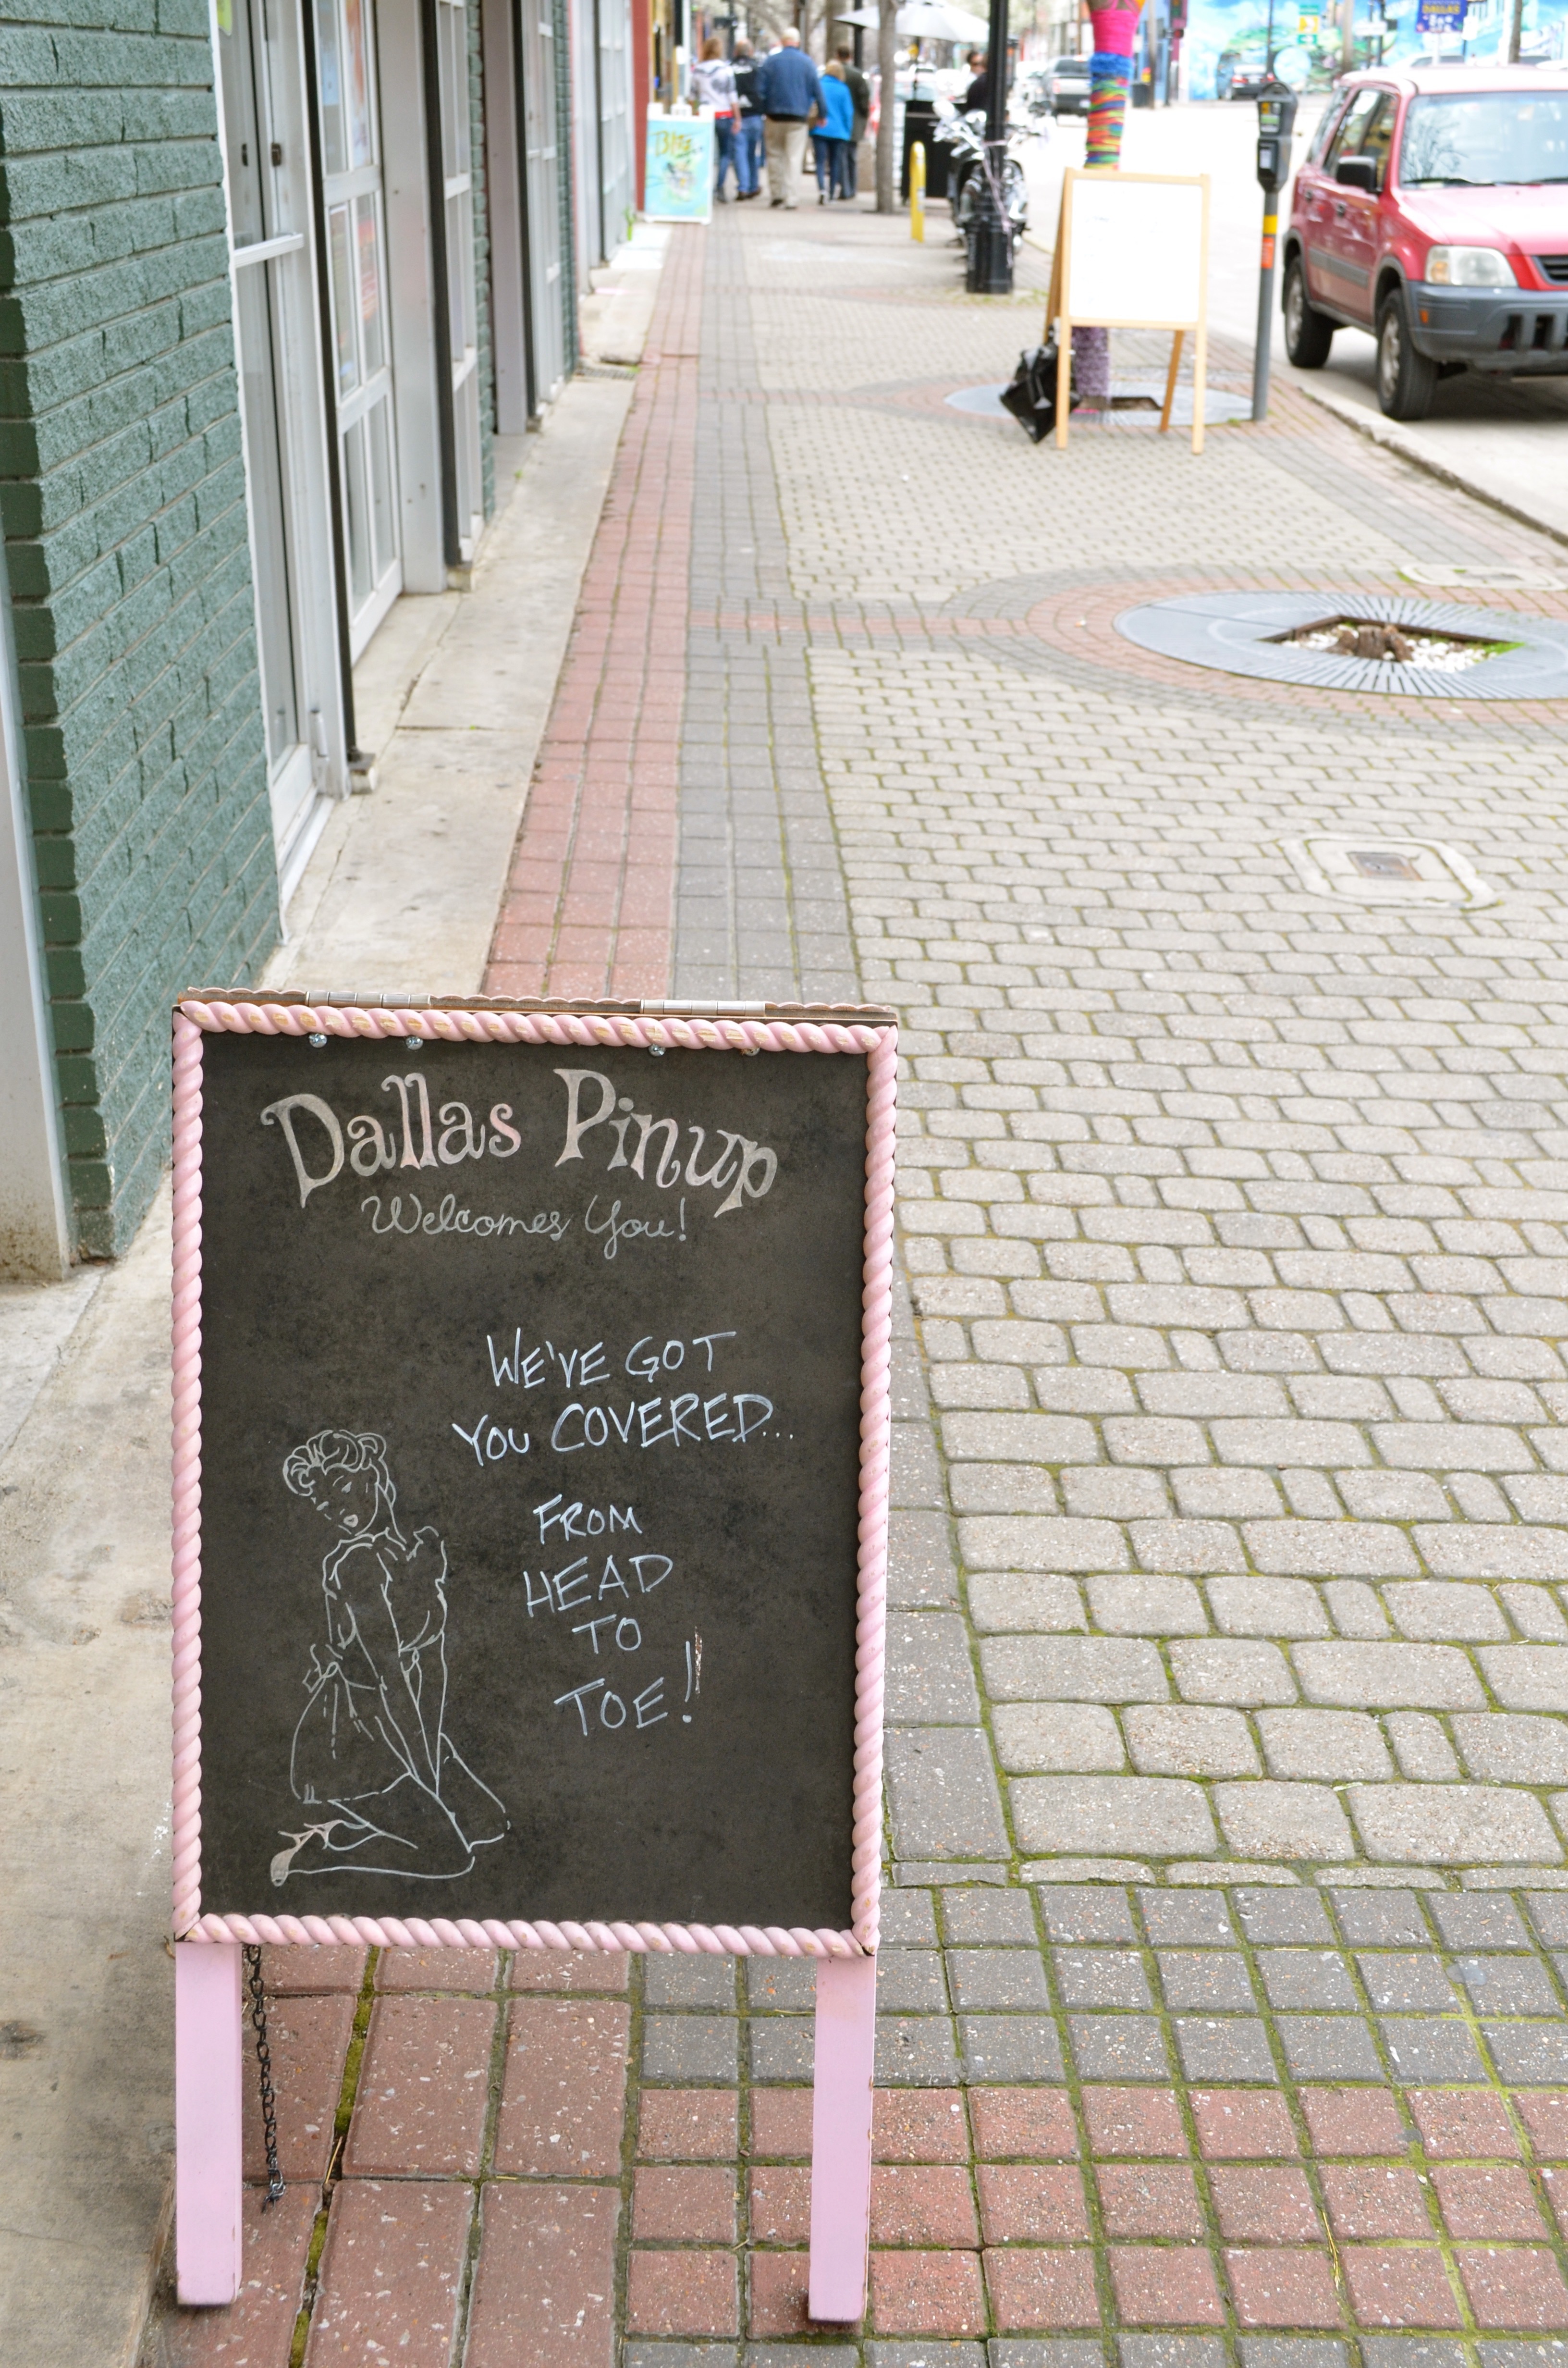 Dallas Pinup
Welcomes You!
WE'VE GOT
YOU COVERED...
FROM
HEAD
TO
TOE!
DALLAS